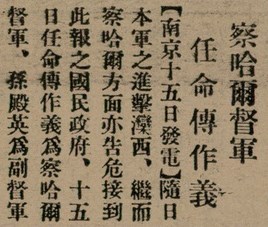 察哈爾督軍
任命傳作義
【南京十五日發電】隨日
本軍之進擊灤西、繼而
察哈爾方面亦告危接到
此報之國民政府、十五
日任命傳作義爲察哈爾
督軍、孫殿英爲副督軍